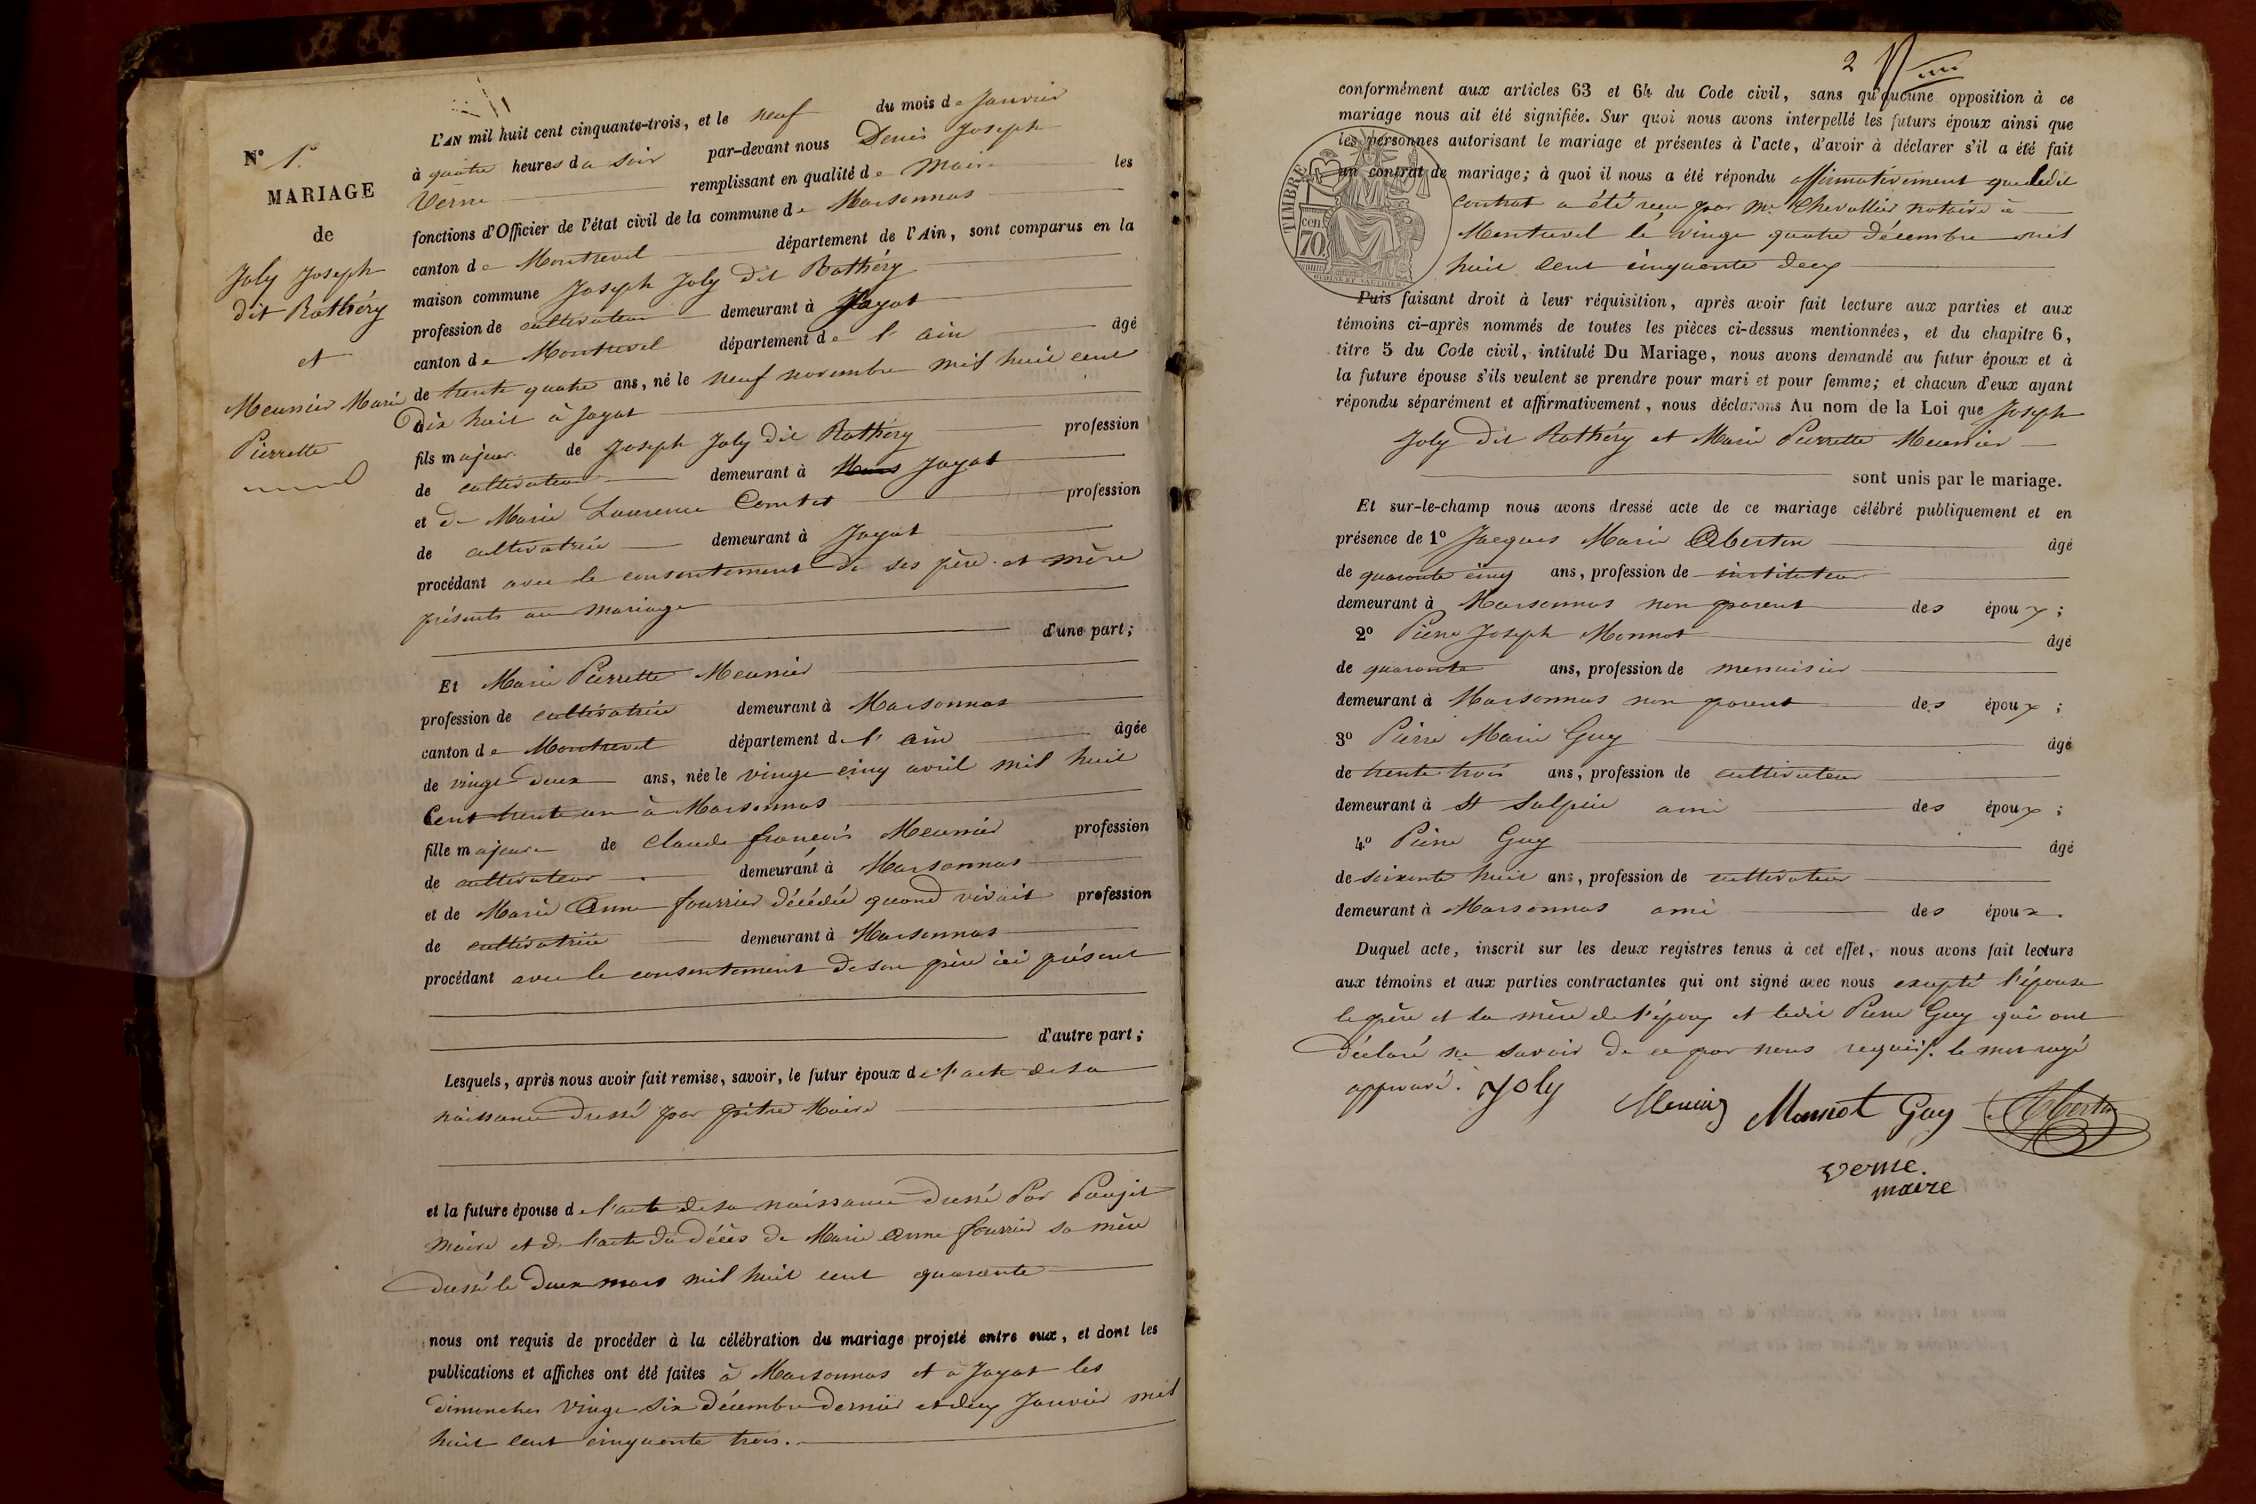 N° 1er
MARIAGE
de
Joly Joseph
dit Rathéry
et
Meunier Marie
Pierrette
L'AN mil huit cent cinquante-trois, et le neuf du mois de Janvier
à quatre heures du soir par-devant nous Denis Joseph
Verne remplissant en qualité de Maire les
fonctions d'Officier de l'état civil de la commune de Marsonnas
canton de Montrevel département de l'Ain, sont comparus en la
maison commune Joseph Joly dit Rathéry
profession de cultivateur demeurant à Jayat
canton de Montrevel département de l'ain âgé
de trente quatre ans, né le neuf novembre mil huit cent
dix huit à Jayat
fils majeur de Joseph Joly dit Rathéry profession
de cultivateur demeurant à Jayat
et de Marie Laurence Combet profession
de cultivatrice demeurant à Jayat
procédant avec le consentement de ses père et mère
présents au mariage
d'une part;
Et Marie Pierrette Meunier
profession de cultivatrice demeurant à Marsonnas
canton de Montrevel département de l'ain âgée
de vingt deux ans, née le vingt cinq avril mil huit
Cent trente un à Marsonnas
fille majeure de Claude françois Meunier profession
de cultivateur demeurant à Marsonnas
et de Marie Anne fourrier décédée quand vivait profession
de cultivatrice demeurant à Marsonnas
procédant avec le consentement de son père ici présent
d'autre part;
Lesquels, après nous avoir fait remise, savoir, le futur époux de l'acte de sa
naissance dressé par pitre Maire
et la future épouse de l'acte de sa naissance dressé Par Paujet
Maire et de l'acte du décès de Marie Anne fourrier sa mère
dressé le deux mars mil huit cent quarante
nous ont requis de procéder à la célébration du mariage projeté entre eux, et dont les
publications et affiches ont été faites à Marsonnas et à Jayat les
dimanches vingt six décembre dernier et deux Janvier mil
huit cent cinquante trois.
2
conformément aux articles 63 et 64 du Code civil, sans qu'aucune opposition à ce
mariage nous ait été signifiée. Sur quoi nous avons interpellé les futurs époux ainsi que
les personnes autorisant le mariage et présentes à l'acte, d'avoir à déclarer s'il a été fait
un contrat de mariage; à quoi il nous a été répondu affirmativement que ledit
contrat a été reçu par Me Chevallier notaire à
Montrevel le vingt quatre décembre mil
huit cent cinquante deux
TIMBRE
cen
70.
Puis faisant droit à leur réquisition, après avoir fait lecture aux parties et aux
témoins ci-après nommés de toutes les pièces ci-dessus mentionnées, et du chapitre 6,
titre 5 du Code civil, intitulé Du Mariage, nous avons demandé au futur époux et à
la future épouse s'ils veulent se prendre pour mari et pour femme; et chacun d'eux ayant
répondu séparément et affirmativement, nous déclarons Au nom de la Loi que Joseph
Joly dit Rathéry et Marie Pierrette Meunier
sont unis par le mariage.
Et sur-le-champ nous avons dressé acte de ce mariage célébré publiquement et en
présence de 1° Jacques Marie Abertin âgé
de quarante cinq ans, profession de instituteur
demeurant à Marsonnas non parent des époux;
2° Pierre Joseph Monnot âgé
de quarante ans, profession de menuisier
demeurant à Marsonnas non parent des époux;
3° Pierre Marie Guy âgé
de trente trois ans, profession de cultivateur
demeurant à St Sulpice ami des époux;
4° Pierre Guy âgé
de soixante huit ans, profession de cultivateur
demeurant à Marsonnas ami des époux.
Duquel acte, inscrit sur les deux registres tenus à cet effet, nous avons fait lecture
aux témoins et aux parties contractantes qui ont signé avec nous excepté l'épouse
le père et la mère de l'époux et ledit Pierre Guy qui ont
déclaré ne savoir de ce par nous requis. le mot rayé
approuvé. Joly Meunier Monnot Guy Abertin
Verne.
maire